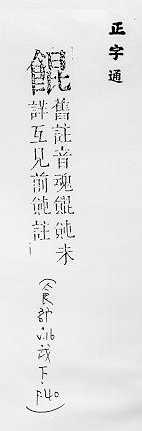 正字通
餛
舊註音魂餛飩未
詳互見前飩註
(食部
v.16
戌
下
P.40)